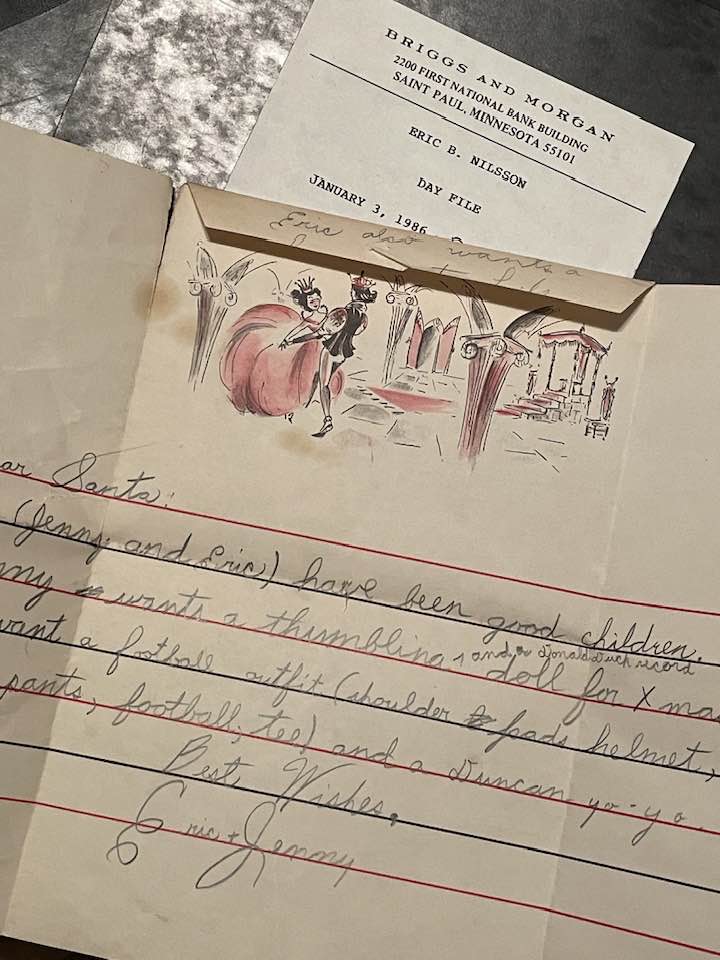 BRIGGS AND MORGAN
2200 FIRST NATIONAL BANK BUILDING
SAINT PAUL, MINNESOTA 55101
ERIC B. NILSSON
DAY FILE
JANUARY 3, 1986
Eric also wants a
ar Santa:
(Jenny and Eric) have been good children.
my wants a thumbling and a Donald Duck record
doll for X ma
want a football outfit (shoulder pads helmet,
pants, football, tee) and a Duncan yo-yo.
Best Wishes,
Eric + Jenny